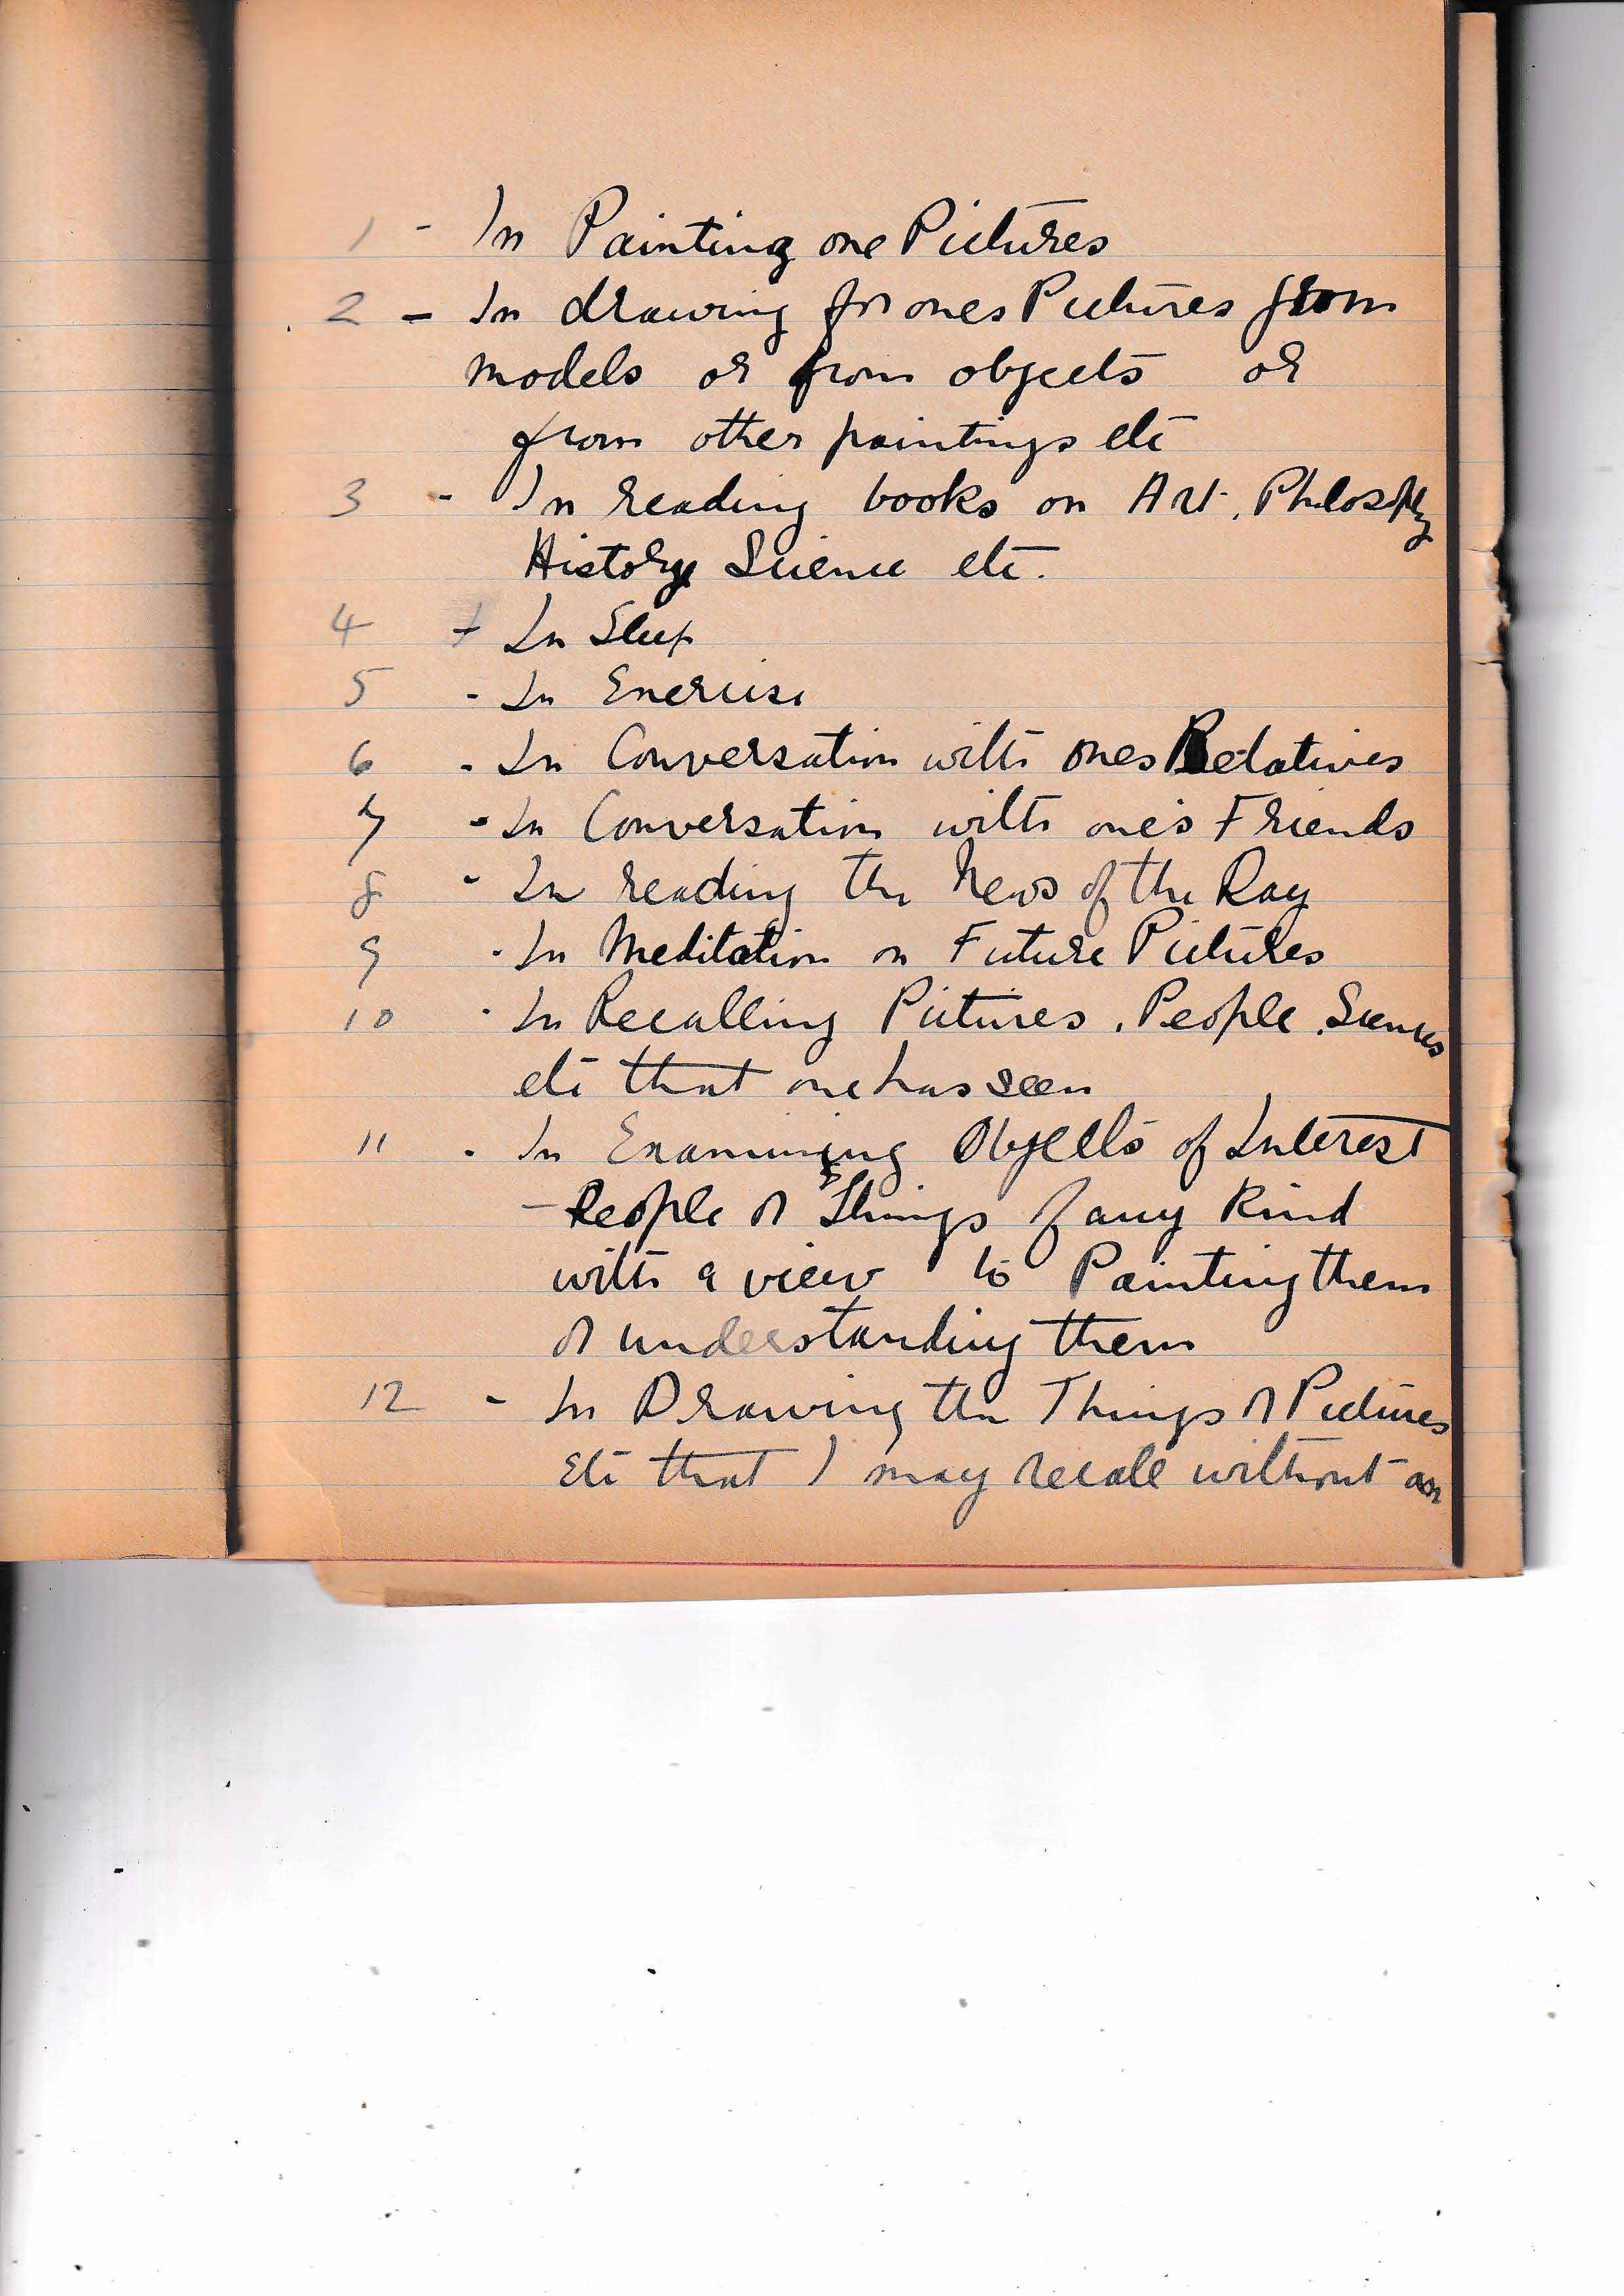 1 - In Painting one Pictures
2 - In drawing for ones Pictures from
models or from objects or
from other paintings etc
3 - In reading books on Art, Philosphy
History Science etc.
4 - In Sleep
5 - In Exercise
6 - In Conversation with ones Relatives
7 - In Conversation with one's Friends
8 - In reading the News of the Day
9 - In Meditation on Future Pictures
10 - In Recalling Pictures, People, Scenes
etc that one has seen
11 - In Examining Objects of Interest
- People or Things of any Kind
with a view to Painting them
or understanding them
12 - In Drawing the Things or Pictures
Etc that I may recall without an